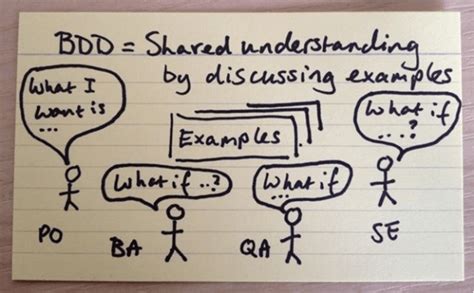 BDD = Shared understanding
by discussing examples
What I
want is
...
What if
...?
Examples
What if ..?
What if
...
PO
BA
QA
SE